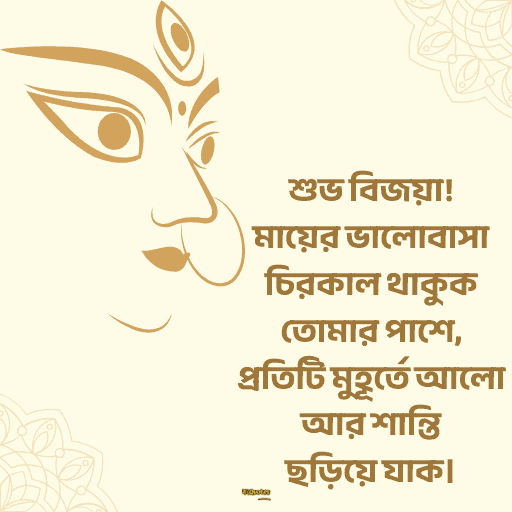 শুভ বিজয়া!
মায়ের ভালোবাসা
চিরকাল থাকুক
তোমার পাশে,
প্রতিটি মুহূর্তে আলো
আর শান্তি
ছড়িয়ে যাক।